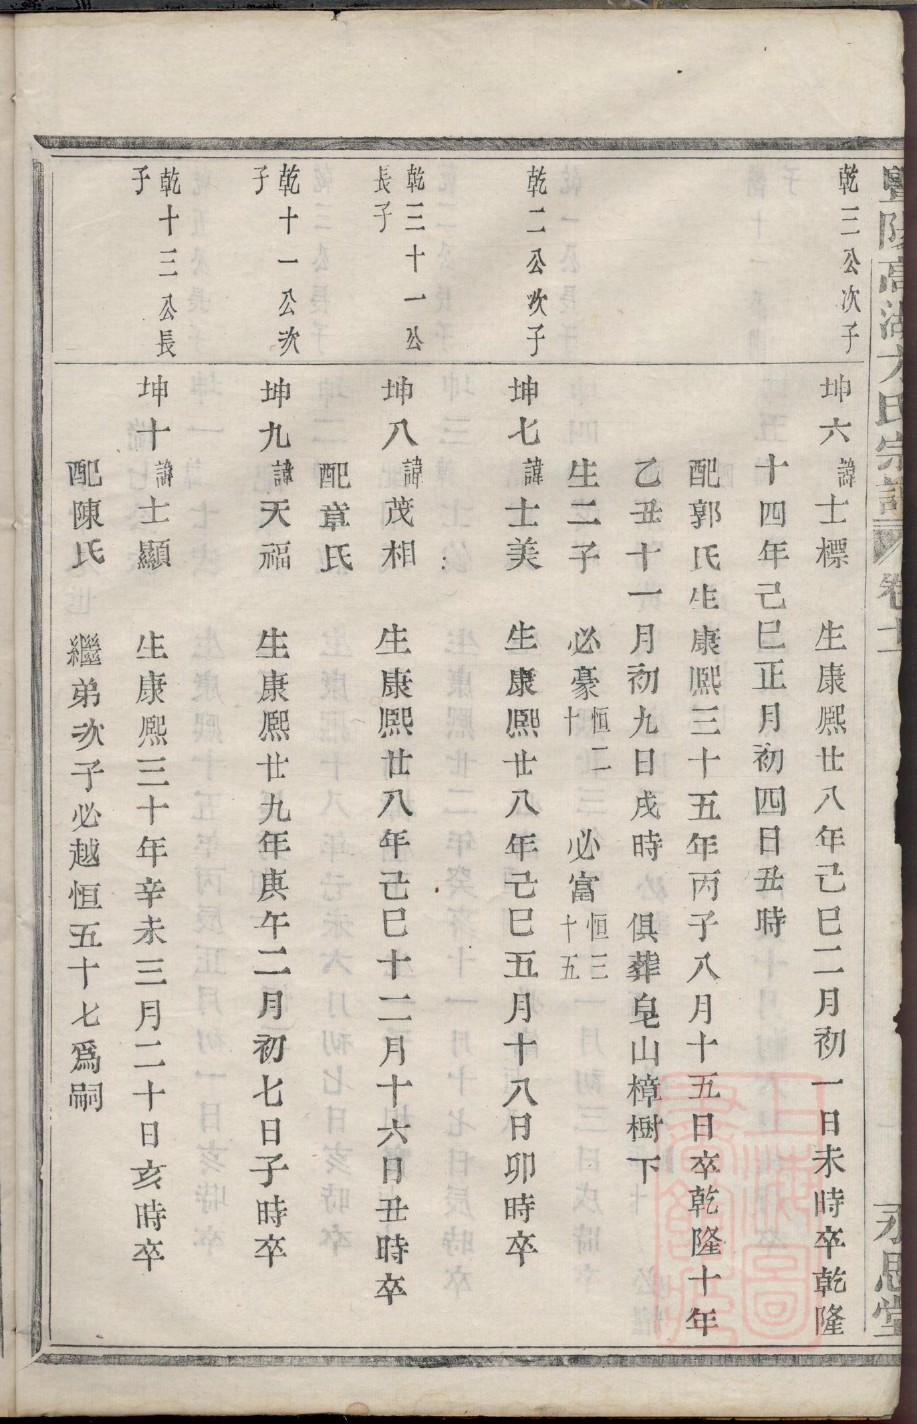 暨陽高湖方氏宗譜 卷十二 永思堂
乾二公次子
坤六諱士標 生康熙廿八年己巳二月初一日未時卒乾隆
十四年己巳正月初四日丑時
配郭氏生康熙三十五年丙子八月十五日卒乾隆十年
乙丑十一月初九日戌時 俱葬皂山樟樹下
生二子 必豪恒二十 必富恒三十五
乾二公次子
坤七諱士美 生康熙廿八年己巳五月十八日卯時卒
乾三十一公長子
坤八諱茂相 生康熙廿八年己巳十二月十六日丑時卒
配章氏
乾十一公次子
坤九諱天福 生康熙廿九年庚午二月初七日子時卒
乾十三公長子
坤十諱士顯 生康熙三十年辛未三月二十日亥時卒
配陳氏 繼弟次子必越恒五十七爲嗣
上海圖書館藏